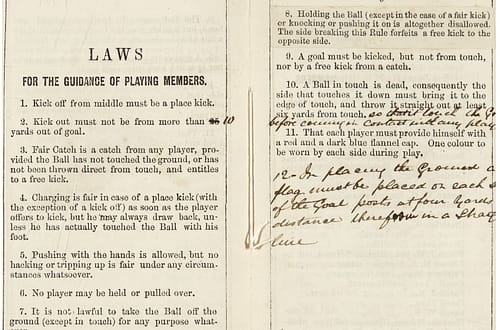 LAWS
FOR THE GUIDANCE OF PLAYING MEMBERS.
1. Kick off from middle must be a place kick.
2. Kick out must not be from more than 10
yards out of goal.
3. Fair Catch is a catch from any player, pro-
vided the Ball has not touched the ground, or has
not been thrown direct from touch, and entitles
to a free kick.
4. Charging is fair in case of a place kick (with
the exception of a kick off) as soon as the player
offers to kick, but he may always draw back, un-
less he has actually touched the Ball with his
foot.
5. Pushing with the hands is allowed, but no
hacking or tripping up is fair under any circum-
stances whatsoever.
6. No player may be held or pulled over.
7. It is not lawful to take the Ball off the
ground (except in touch) for any purpose what-
8. Holding the Ball (except in the case of a fair kick)
or knocking or pushing it on is altogether disallowed.
The side breaking this Rule forfeits a free kick to the
opposite side.
9. A goal must be kicked, but not from touch,
nor by a free kick from a catch.
10. A Ball in touch is dead, consequently the
side that touches it down must bring it to the
edge of touch, and throw it straight out at least
six yards from touch. touch the
before coming in contact with any play
11. That each player must provide himself with
a red and a dark blue flannel cap. One colour to
be worn by each side during play.
12 - In placing the Grounds a
flag must be placed on each s
of the Goal posts at four Yards
distance in a
line